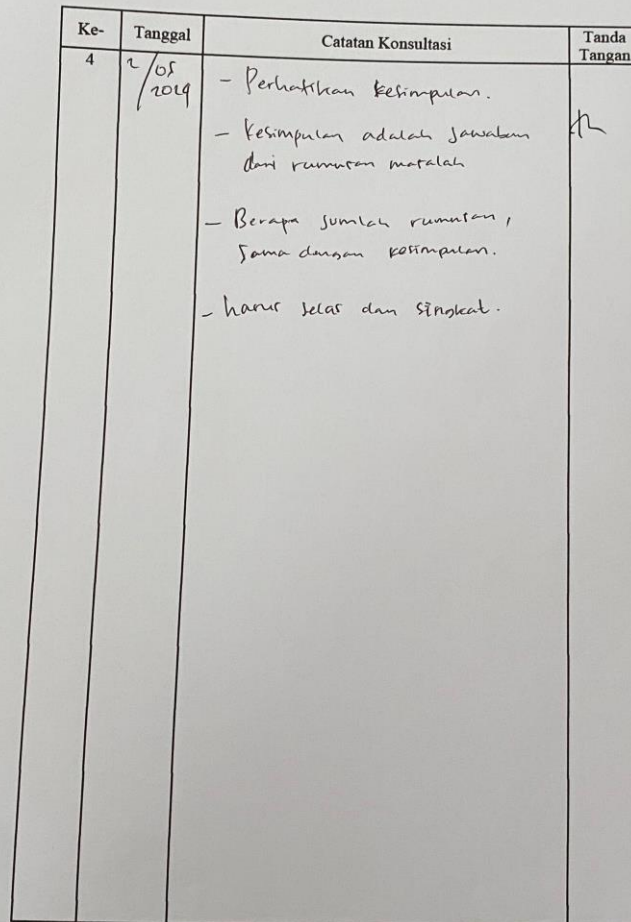 Ke- Tanggal Catatan Konsultasi Tanda Tangan
4 2/05 2024 - Perhatikan kesimpulan.
- Kesimpulan adalah jawaban
dari rumusan masalah
- Berapa jumlah rumusan,
sama dengan kesimpulan.
- harus jelas dan singkat.